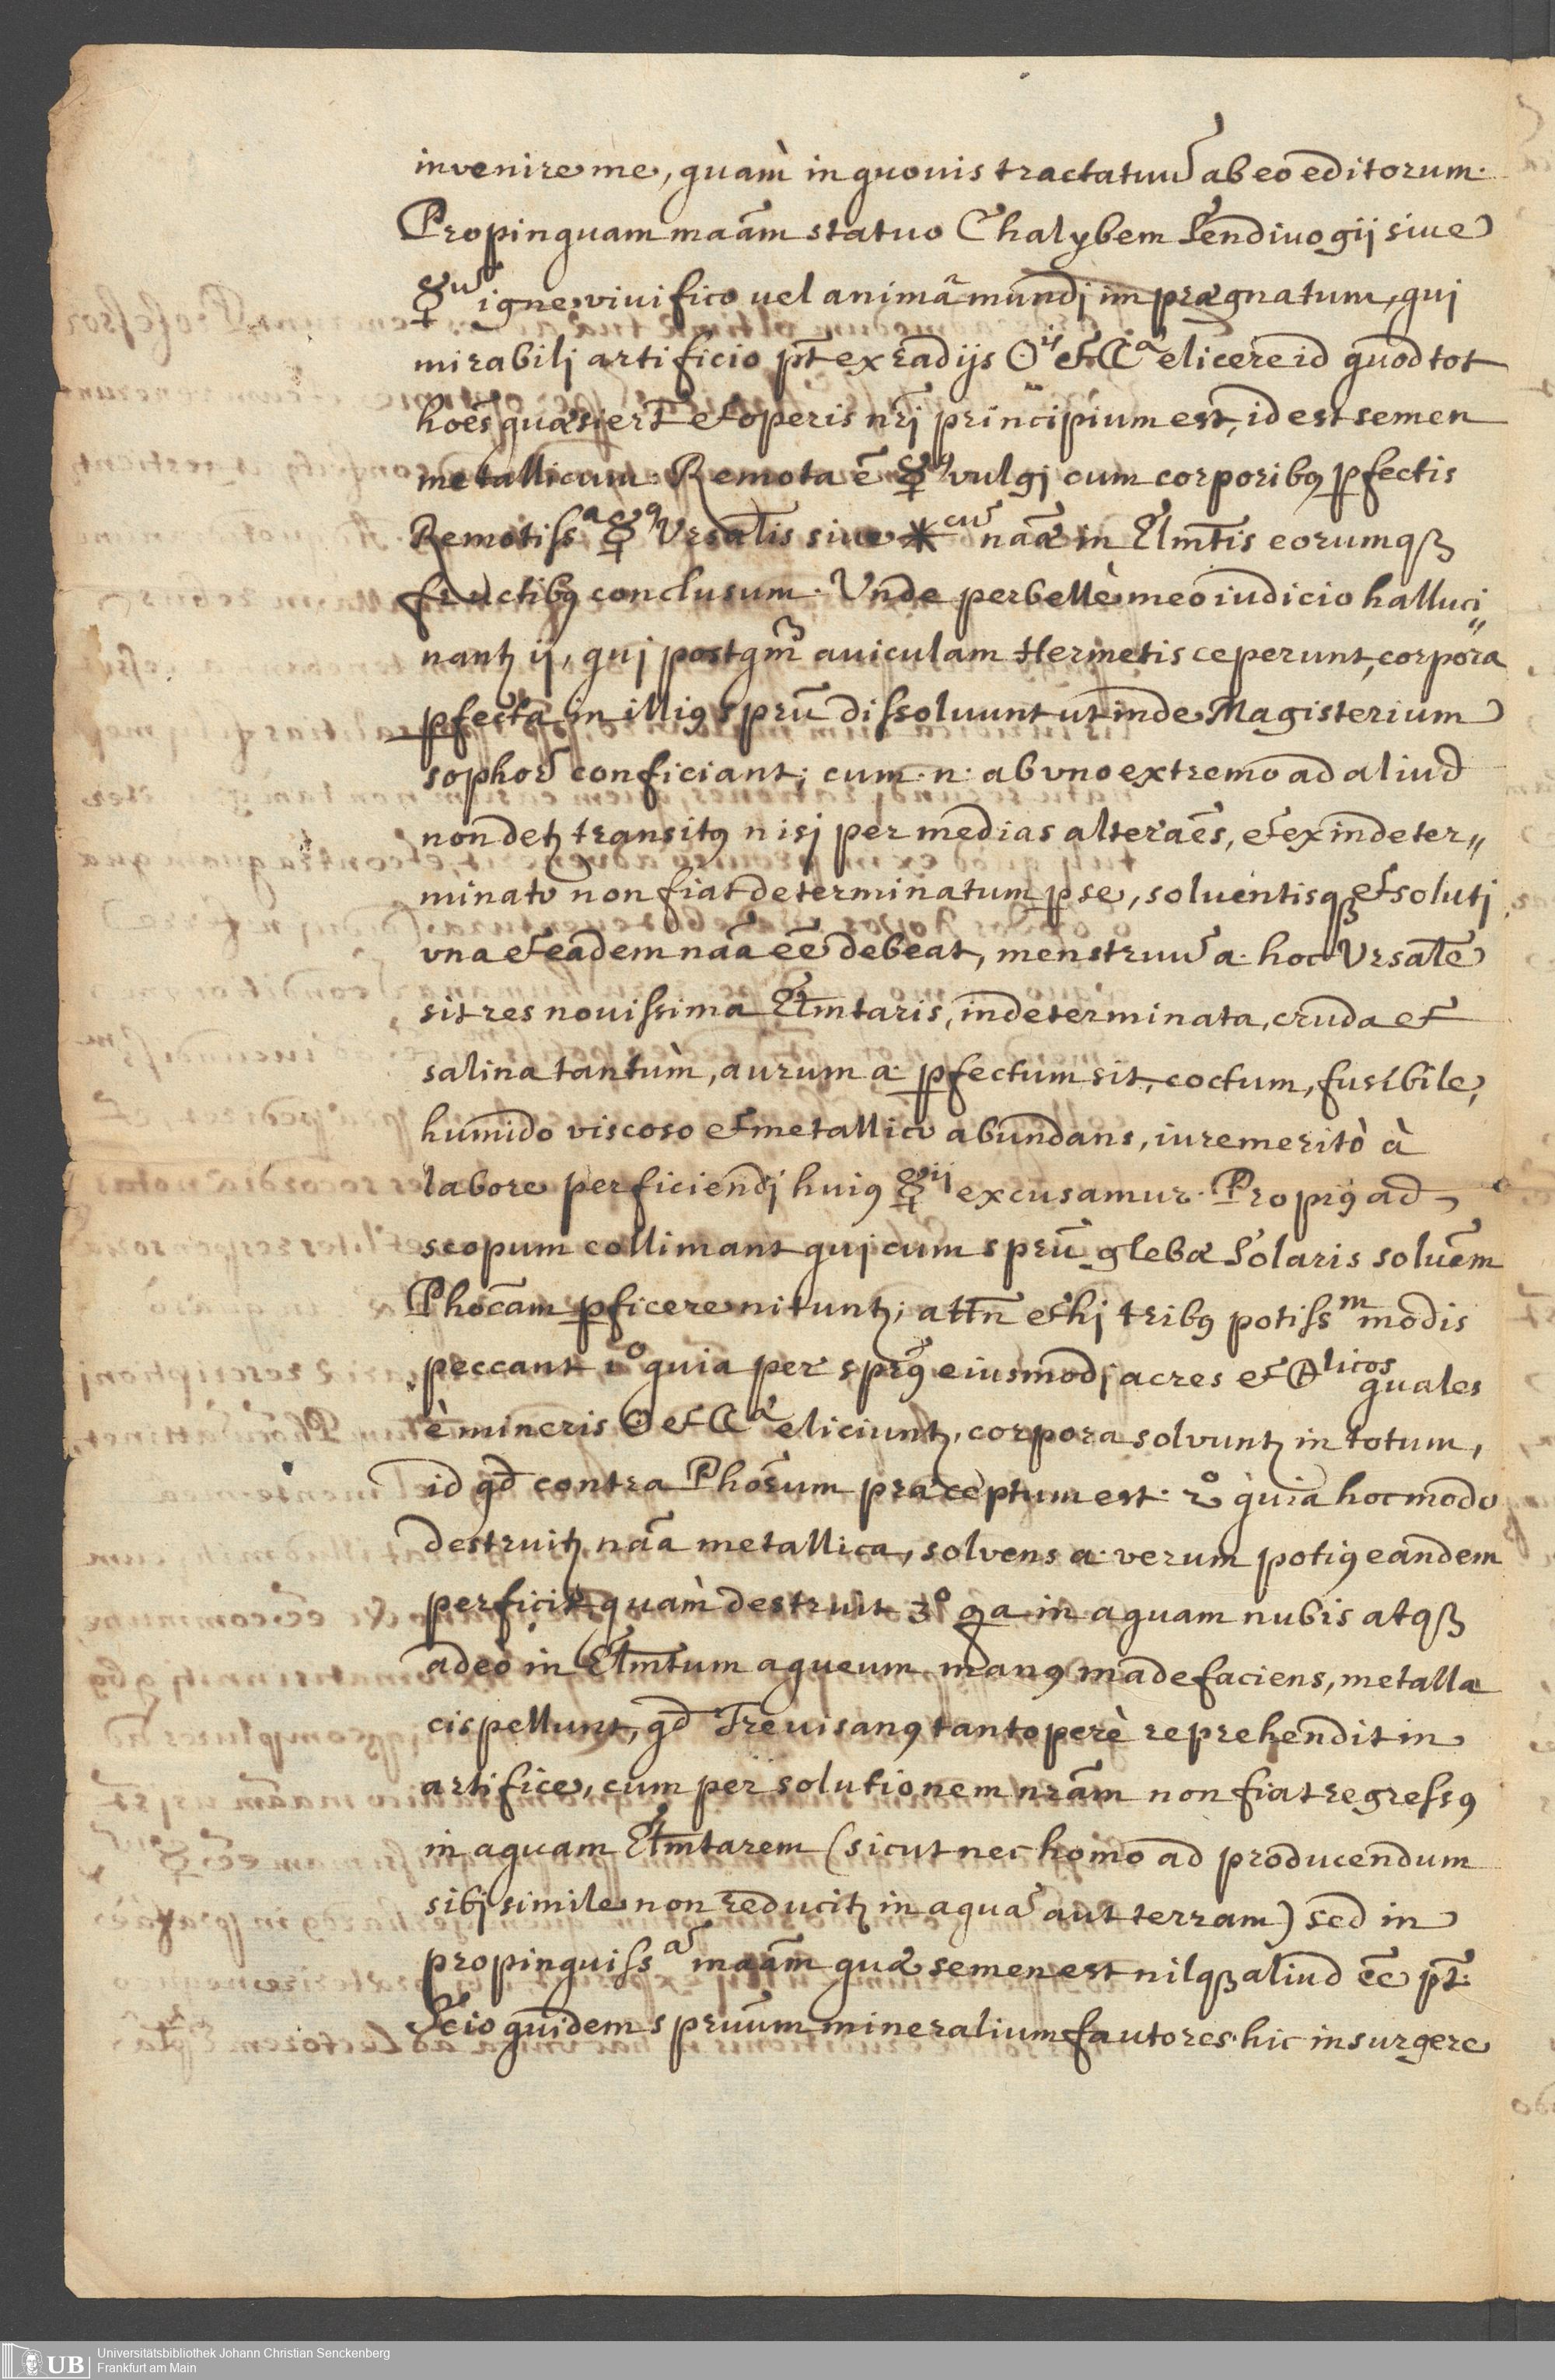 invenire me, quam̀ in quouis tractatuũ ab eo editorum.
Propinquam maãm statuo Chalybem Sendiuogij siue
☿ũ igne vivifico vel animã mundj impraegnatum, quj
mirabilj artificio pt̃ ex radijs ☉is et ☾ae elicere id quod tot
hoẽs quaesier̃t et operis nrj̃ principium est, id est semen
metallicum. Remota ẽ ☿9 vulgj cum corporib9 pfectis
Remotissa ☿9 Vrsalis̃ siue ✶cũ naã in Elmt̃is eorumqꝫ
fructib9 conclusum. Vnde perbellè meo iudicio halluci„
nantꝫ ij, quj postqm̃ auiculam Hermetis ceperunt, corpora
pfecta in illi9 sprũ dissoluunt ut inde Magisterium
sophor̃ conficiant; cum .n. ab vno extremo ad aliud
non detꝫ transit9 nisj per medias alteraẽs, et ex indeter„
minato non fiat determinatum p se, soluentisqꝫ et solutj
vna et eadem naã eẽ debeat, menstruũ a. hoc Vrsalẽ
sit res nouissima Elmt̃aris, indeterminata, cruda et
salina tantum̀, aurum a. pfectum sit, coctum, fusibile,
humido viscoso et metallico abundans, iure meritò à
labore perficiendj hui9 ☿ij excusamur. Propi9 ad
scopum collimant quj cum sprũ glebae Solaris soluẽm
Phocam̃ pficere nituntꝫ; attñ et hj trib9 potissm modis
peccant 1o quia per sprũ9 eiusmodj acres et 🜨licos quales
è mineris ☉ et ☾ae eliciuntꝫ, corpora solvuntꝫ in totum,
id qd̃ contra Phor̃um praeceptum est. 2o quia hoc modo
destruitꝫ naã metallica, solvens a. verum poti9 eandem
perficit quam̀ destruit 3o qa in aquam nubis atqꝫ
adeò in Elmt̃um aqueum man9 madefaciens, metalla
cispellunt, qd̃ Treuisan9 tantoperè reprehendit in
artifice, cum per solutionem nrãm non fiat regress9
in aquam Elmt̃arem (sicut nec homo ad producendum
sibj simile non reducitꝫ in aquã aut terram) sed in
propinquissã maãm quae semen est nilqꝫ aliud eẽ pt̃.
Scio quidem spruũm mineralium fautores hic insurgere
UB Universitätsbibliothek Johann Christian Senckenberg
Frankfurt am Main